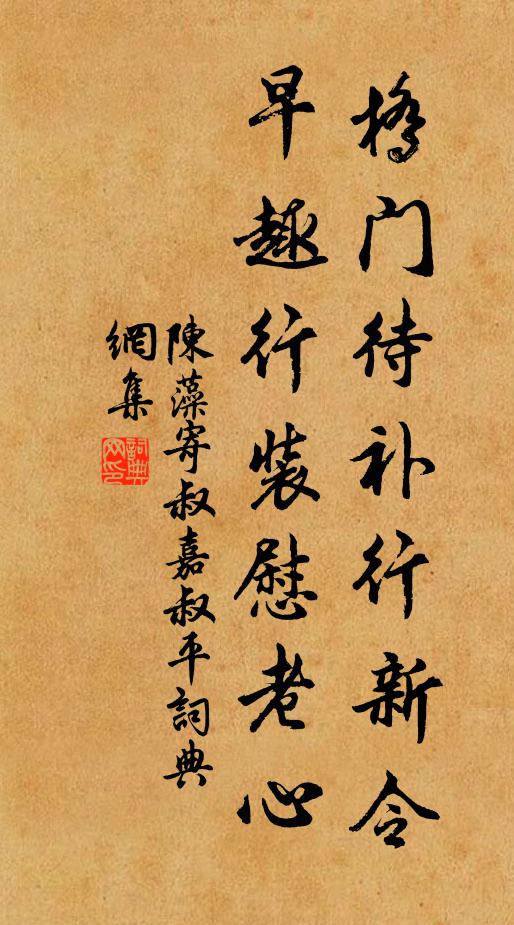 桥门待补行新令
早趣行装慰老心
陳藻寄叔嘉叔平詞典
網集
詞典網印